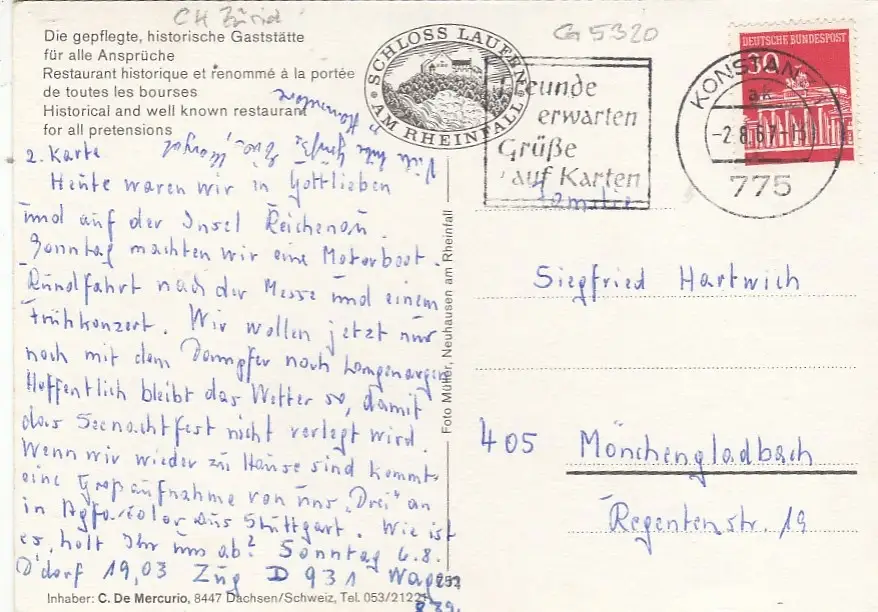 CH Zürich
G 5320
Die gepflegte, historische Gaststätte
für alle Ansprüche
Restaurant historique et renommé à la portée
de toutes les bourses
Historical and well known restaurant
for all pretensions
SCHLOSS LAUFEN
AM RHEINFALL
Freunde
erwarten
Grüße
auf Karten
DEUTSCHE BUNDESPOST
30
KONSTANZ
-2.8.67-
775
2. Karte
Viele liebe Grüße
Heute waren wir in Gottlieben
und auf der Insel Reichenau.
Sonntag machten wir eine Motorboot-
Rundfahrt nach der Messe und einem
Frühkonzert. Wir wollen jetzt nur
noch mit dem Dampfer nach Langenargen
Hoffentlich bleibt das Wetter so, damit
das Seenachtfest nicht verlegt wird.
Wenn wir wieder zu Hause sind kommt
eine Großaufnahme von uns „Drei" an
in Agfacolor aus Stuttgart. Wie ist
es, holt Ihr uns ab? Sonntag 6.8.
D'dorf 19,03 Zug D 931 Wagen
252
Inhaber: C. De Mercurio, 8447 Dachsen/Schweiz, Tel. 053/21221
Foto Müller, Neuhausen am Rheinfall
Familie
Siegfried Hartwich
405 Mönchengladbach
Regentenstr. 19